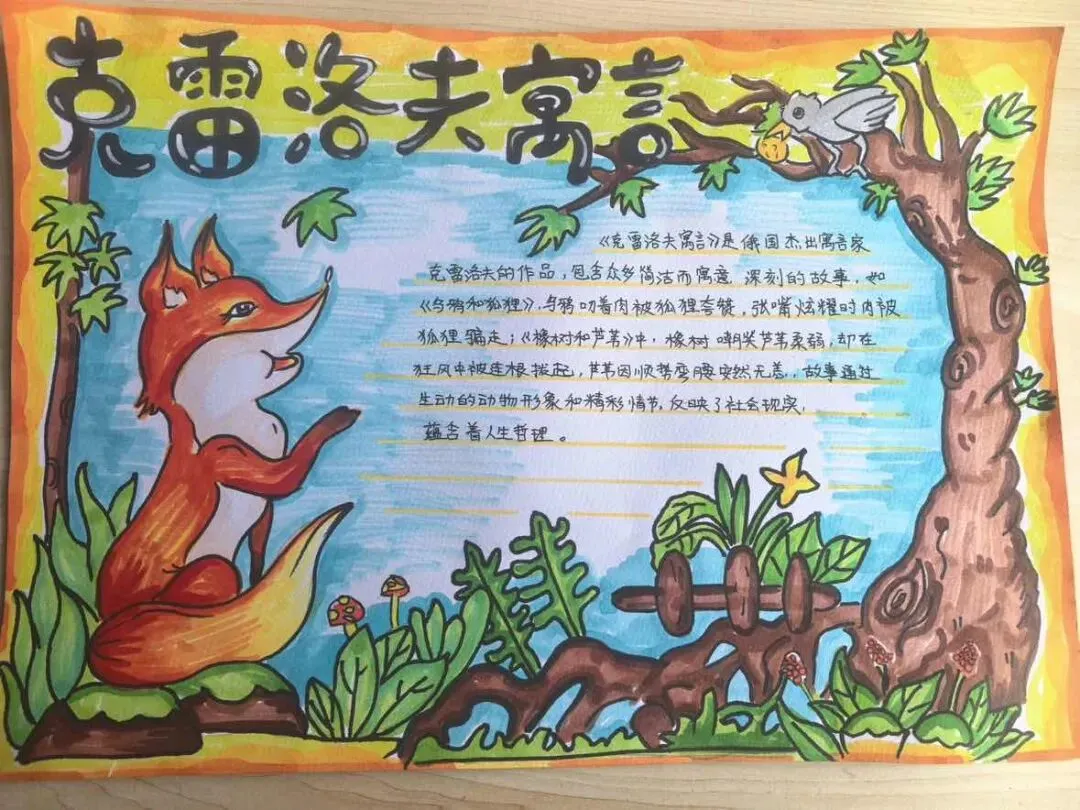 克雷洛夫寓言
《克雷洛夫寓言》是俄国杰出寓言家
克雷洛夫的作品，包含众多简洁而寓意深刻的故事，如
《乌鸦和狐狸》，乌鸦叼着肉被狐狸夸赞，张嘴炫耀时肉被
狐狸骗走；《橡树和芦苇》中，橡树嘲笑芦苇柔弱，却在
狂风中被连根拔起，芦苇因顺势弯腰安然无恙，故事通过
生动的动物形象和精彩情节，反映了社会现实，
蕴含着人生哲理。